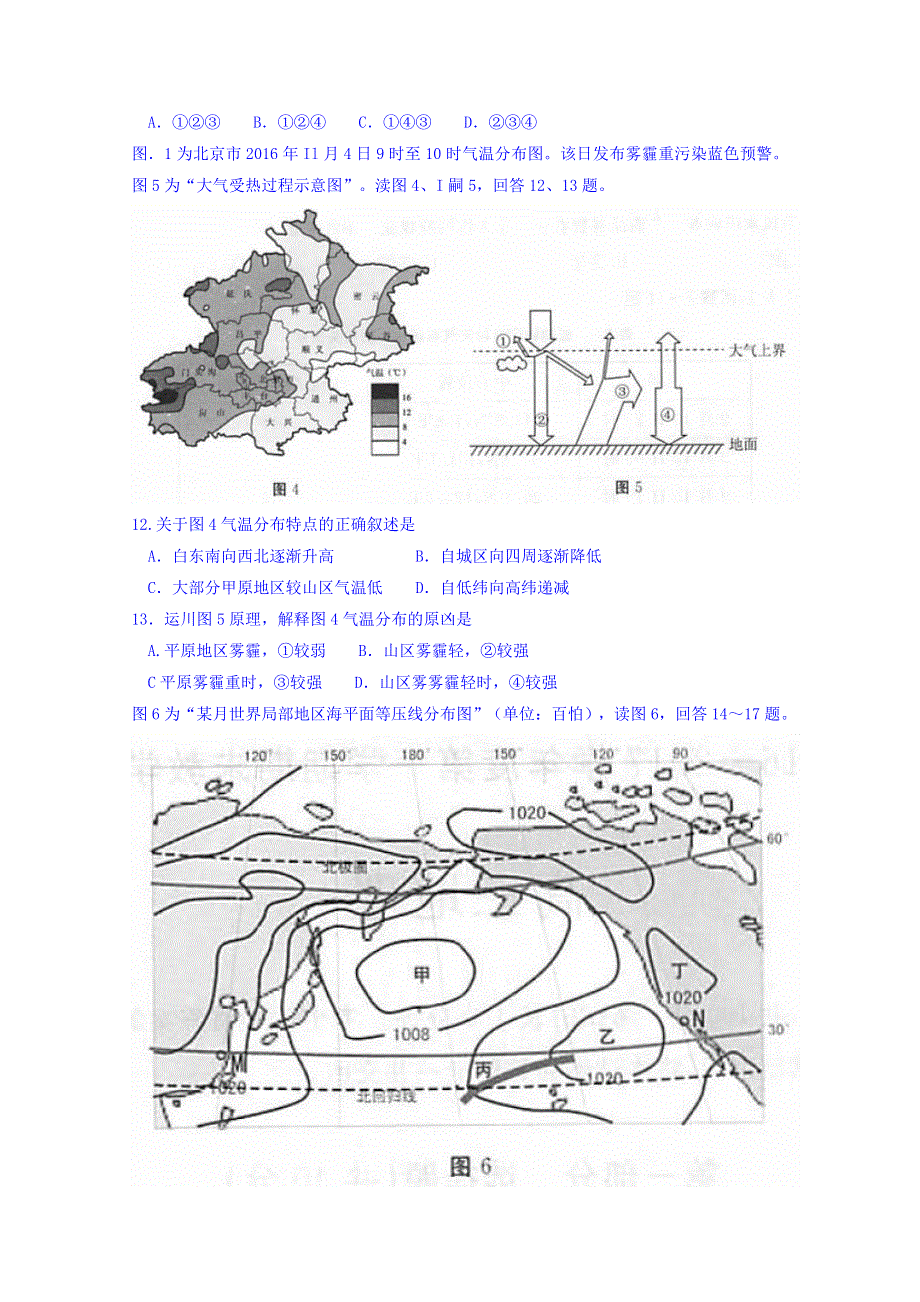 A．①②③ B．①②④ C．①④③ D．②③④
图．1 为北京市 2016 年 Il 月 4 日 9 时至 10 时气温分布图。该日发布雾霾重污染蓝色预警。
图 5 为“大气受热过程示意图”。渎图 4、I 嗣 5，回答 12、13 题。
延 庆
密 云
怀 柔
昌 平
顺 义
门头沟
房 山
大 兴
通 州
气温（℃）
16
12
8
4
图 4
①
②
③
④
大气上界
地面
图 5
12.关于图 4 气温分布特点的正确叙述是
A．白东南向西北逐渐升高 B．自城区向四周逐渐降低
C．大部分甲原地区较山区气温低 D．自低纬向高纬递减
13．运川图 5 原理，解释图 4 气温分布的原凶是
A.平原地区雾霾，①较弱 B．山区雾霾轻，②较强
C 平原雾霾重时，③较强 D．山区雾雾霾轻时，④较强
图 6 为“某月世界局部地区海平面等压线分布图”（单位：百怕），读图 6，回答 14～17 题。
120° 150° 180° 150° 120° 90°
1020
60°
北极圈
甲
丁
1020
N
1008
乙
30°
M
丙
1020
1020
北回归线
图 6